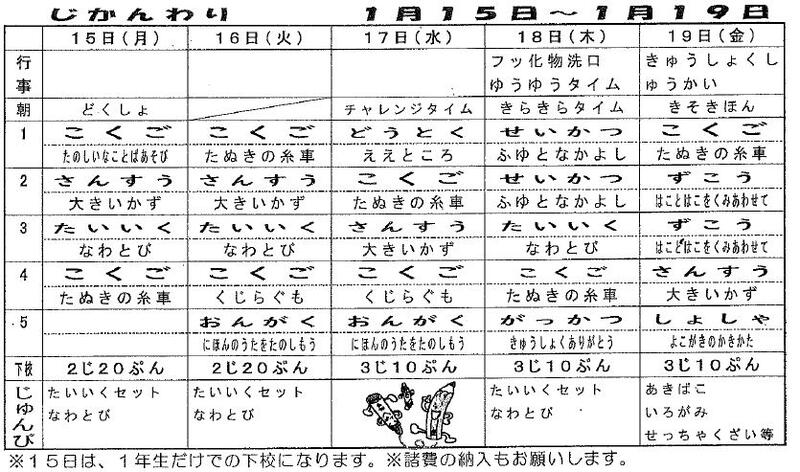 じかんわり　１月１５日～１月１９日
１５日（月）　１６日（火）　１７日（水）　１８日（木）　１９日（金）
行事　フッ化物洗口　きゅうしょくし
ゆうゆうタイム　ゅうかい
朝　どくしょ　チャレンジタイム　きらきらタイム　きそきほん
1　こくご　こくご　どうとく　せいかつ　こくご
たのしいなことばあそび　たぬきの糸車　ええところ　ふゆとなかよし　たぬきの糸車
2　さんすう　さんすう　こくご　せいかつ　ずこう
大きいかず　大きいかず　たぬきの糸車　ふゆとなかよし　はことはこをくみあわせて
3　たいいく　たいいく　さんすう　たいいく　ずこう
なわとび　なわとび　大きいかず　なわとび　はことはこをくみあわせて
4　こくご　こくご　こくご　こくご　さんすう
たぬきの糸車　くじらぐも　くじらぐも　たぬきの糸車　大きいかず
5　おんがく　おんがく　がっかつ　しょしゃ
にほんのうたをたのしもう　にほんのうたをたのしもう　きゅうしょくありがとう　よこがきのかきかた
下校　２じ２０ぷん　２じ２０ぷん　３じ１０ぷん　３じ１０ぷん　３じ１０ぷん
じゅんび　たいいくセット　たいいくセット　たいいくセット　あきばこ
なわとび　なわとび　なわとび　いろがみ
せっちゃくざい等
※１５日は、１年生だけでの下校になります。※諸費の納入もお願いします。